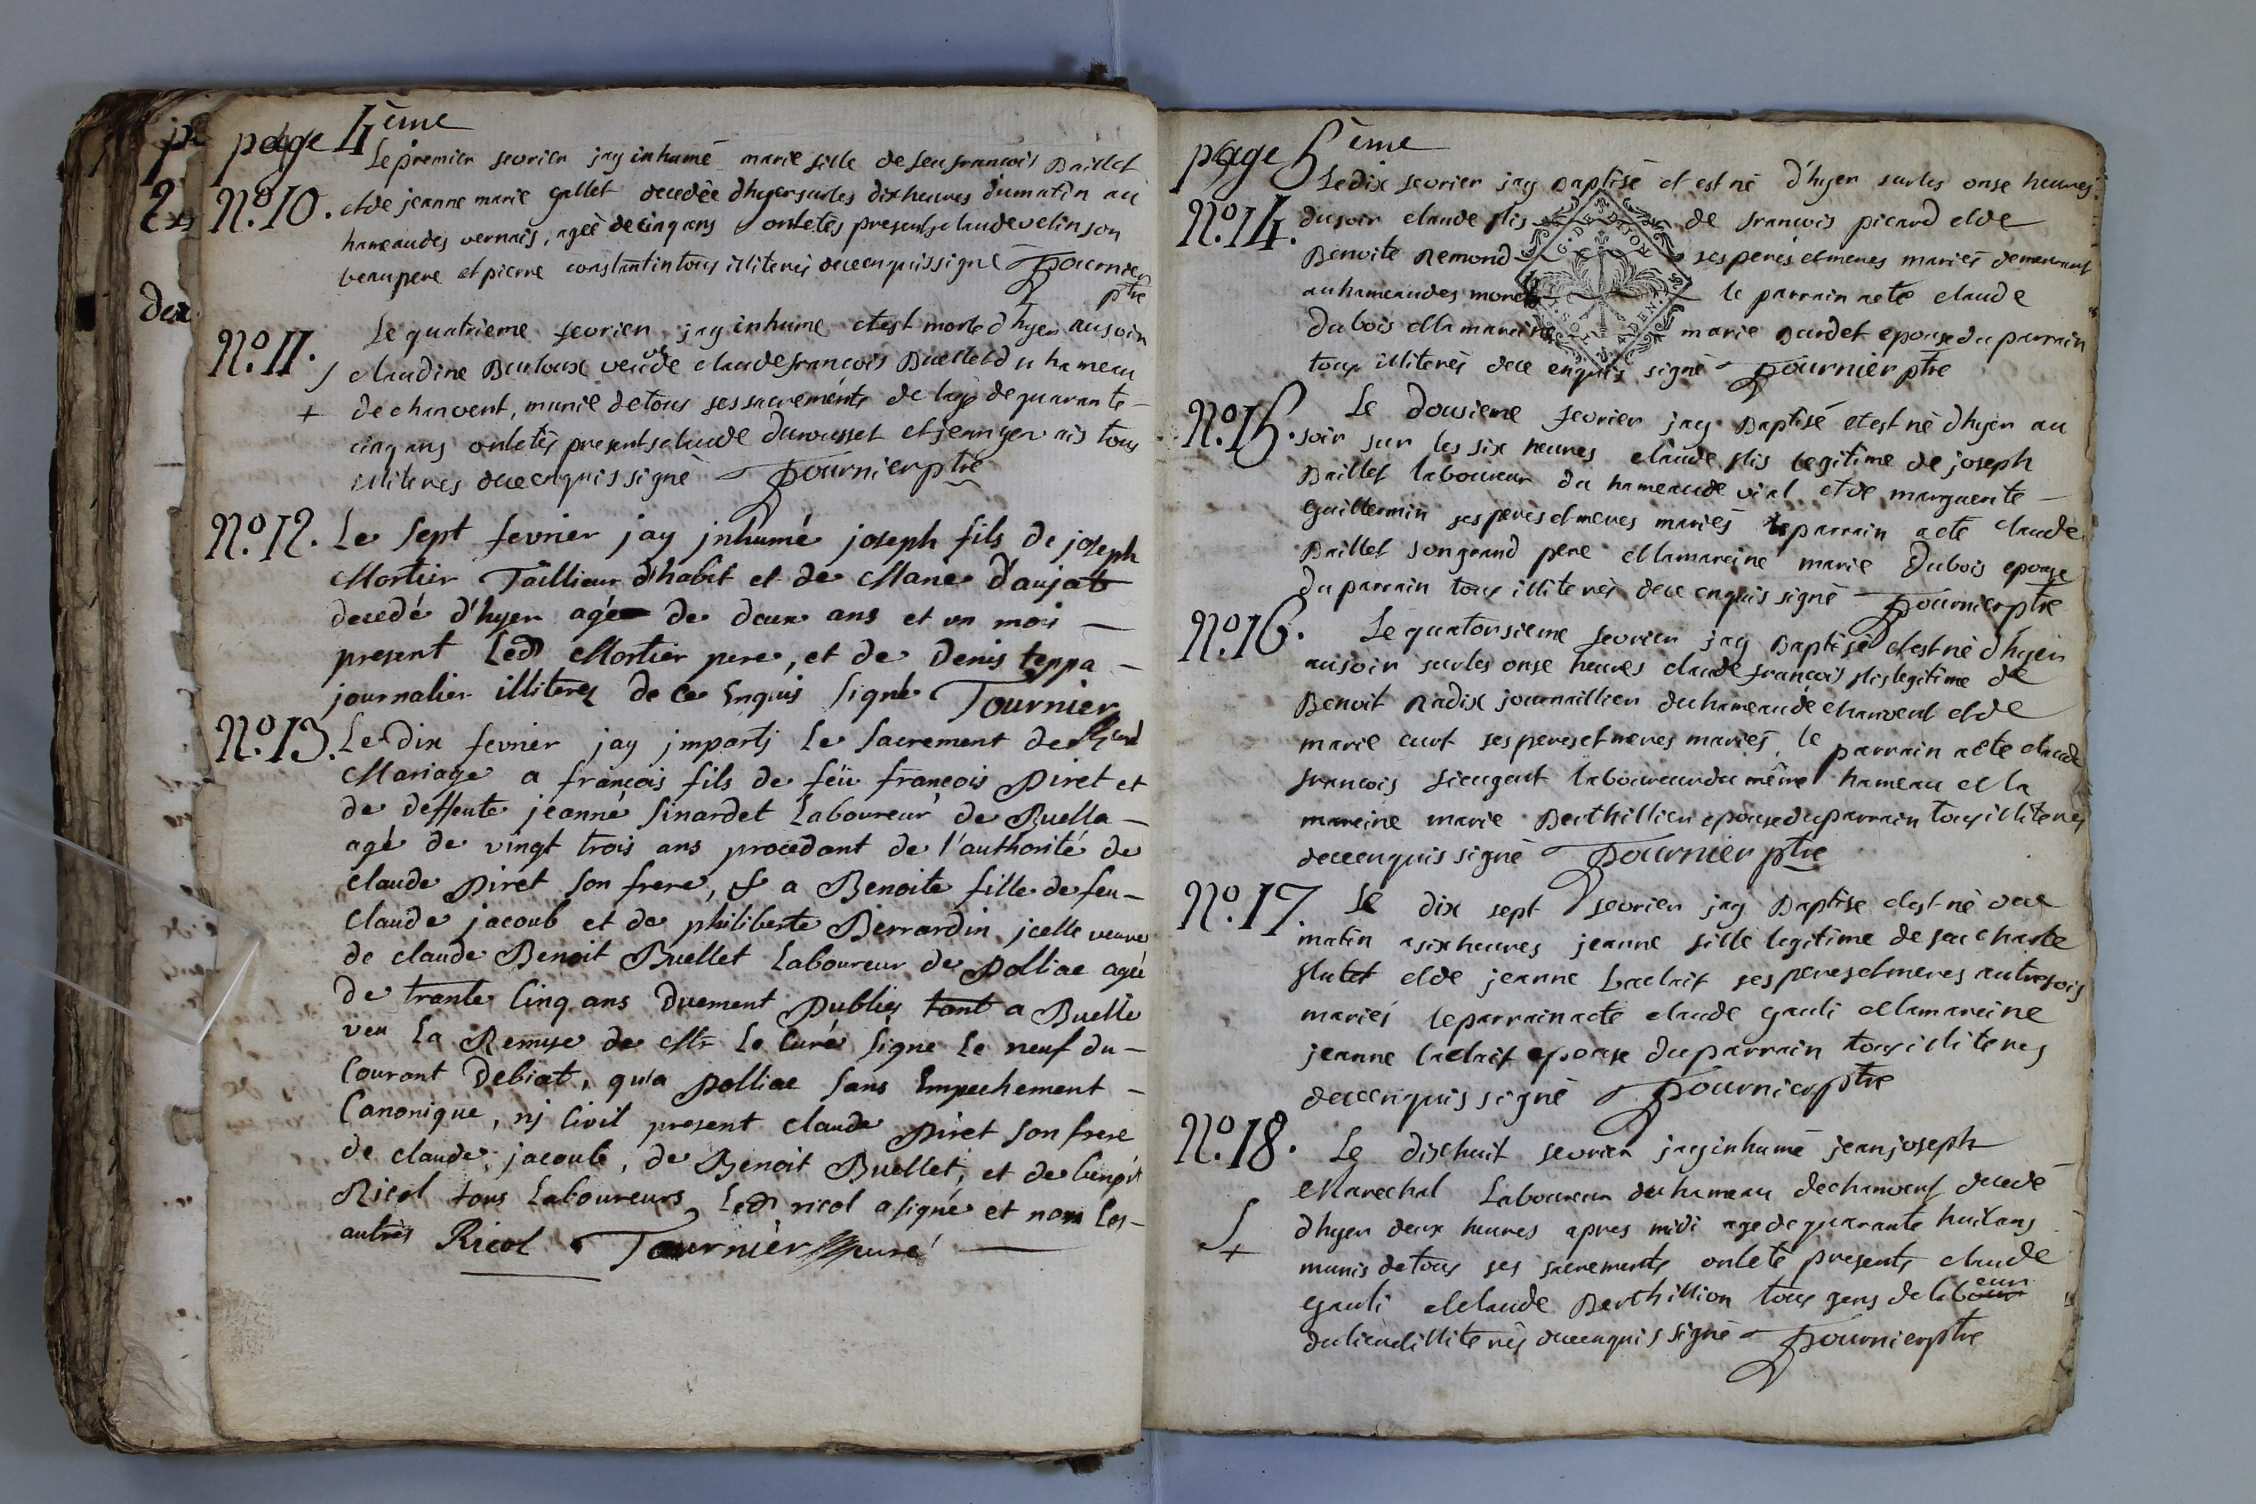 page 4ème
Le premier fevrier jay inhumé marie fille de feu francois Baillet
N.º 10. et de jeanne marie gallet decedée d'hyer sur les dix heures du matin au
hameau des vernais, ageé de cinq ans ont etés presents claude velin son
beaupere et pierre constantin tous illiterés de ce enquis signé Fournier
ptre
Le quatrieme fevrier jay inhumé et est morte d'hyer au soir
N.º 11. claudine Builoux veuve de claude francois Buellet du hameau
de chanvent, munie de tous ses sacreménts de lage de quarante
cinq ans ont etés presents claude durousset et jean gervais tous
illiterés de ce enquis signé Fournier ptre
N.º 12. Le Sept fevrier jay jnhumé joseph fils de joseph
Mortier Taillieur d'habit et de Marie d'aujat
decedé d'hyer agé de deux ans et un mois
present Ledt Mortier pere, et de Denis teppa
journalier illiterez de ce Enquis Signé Tournier
curé
N.º 13. Le Dix fevrier jay jmparti Le Sacrement de
Mariage a francois fils de feü francois Piret et
de deffente jeanne Sinardet Laboureur de Buella
agé de vingt trois ans procedant de l'authorité de
claude Piret Son frere, & a Benoite fille de feu
Claude jacoub et de philiberte Berrardin jcelle veuve
de claude Benoit Buellet Laboureur de Polliac ageé
De trante Cinq ans Duement Publiez tant a Buelle
veu La Remise de Mr Le Curé Signe Le neuf du
Courant Debiat, qu'a Polliac Sans Empechement
Canonique, nj Civil present claude Piret Son frere
de claude jacoub, de Benoit Buellet, et de benoit
Ricol tous Laboureurs Ledt ricol a signé et non Les
autres Ricol Tournier curé
page 5ème
Le dix fevrier jay Baptisé et est né d'hyer sur les onse heures
N.º 14. du soir claude fils de francois picard et de
G. DE DIJON
Benoite Remond ses perés et meres mariés demeurant
au hameau des morel le parrain a eté claude
Dubois et la mareine marie Burdet epouse du parrain
tous illiterés de ce enquis signé Fournier ptre
Le dousieme fevrier jay Baptisé et est né d'hyer au
N.º 15. soir sur les six heures claude fils legitime de joseph
Baillet laboureur du hameau de vial et de marguerite
guillermin ses peres et meres mariés le parrain a eté claude
Baillet son grand pere et la mareine marie Dubois epouse
du parrain tous illiterés de ce enquis signé Fournier ptre
N.º 16. Le quatorsieme fevrier jay Baptisé et est né d'hyer
au soir sur les onse heures claude francois fils legitime de
Benoit Radix journaillier du hameau de chanvent et de
marie curt ses peres et meres mariés, le parrain a eté claude
francois laboureur du même hameau et la
mareine marie Berthillier epouse du parrain tous illiterés
de ce enquis signé Fournier ptre
N.º 17. Le dix sept fevrier jay Baptisé et est né de ce
matin a six heures jeanne fille legitime de feu charle
flutet et de jeanne Laclait ses peres et meres autrefois
mariés le parrain a eté claude gauli et la mareine
jeanne laclait epouse du parrain tous illiterés
de ce enquis signé Fournier ptre
N.º 18. Le dix huit fevrier jay inhumé jean joseph
Marechal Laboureur du hameau de chanvent decedé
d'hyer deux heures apres midi agé de quarante huit ans
munis de tous ses sacrements ont eté presents claude
gauli et claude Berthillion tous gens de labeur
du lieu et illiterés de ce enquis signé Fournier ptre